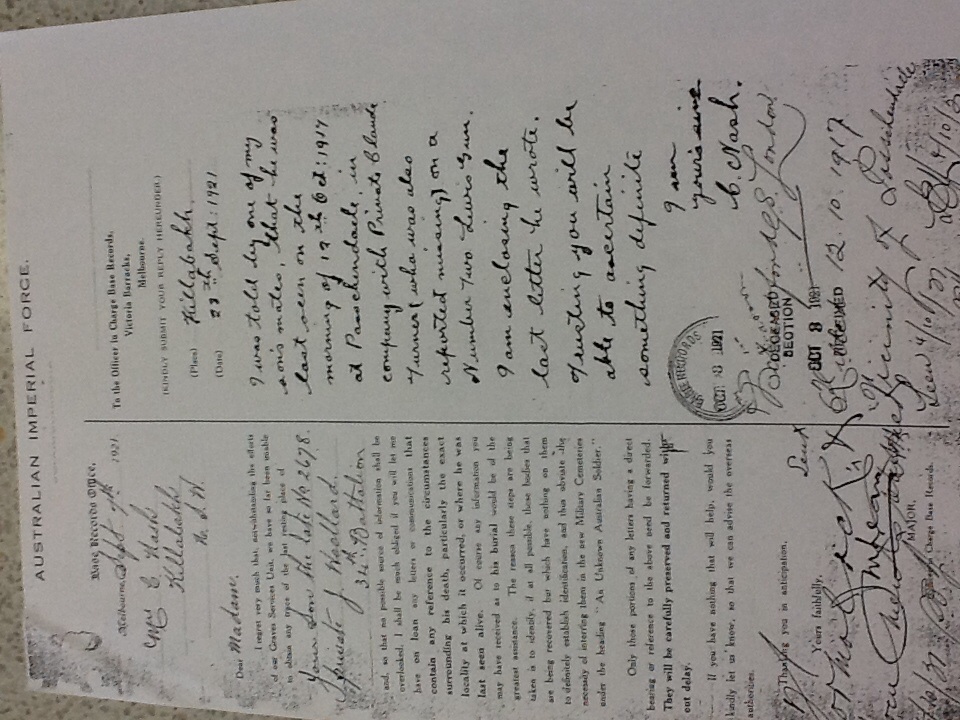 AUSTRALIAN IMPERIAL FORCE.
Base Records Office,
Melbourne, Sept 1921.
Mrs C. Nash
Killabakh
N.S.W.
Dear Madame,
I regret very much that, notwithstanding the efforts
of our Graves Services Unit, we have so far been unable
to obtain any trace of the last resting place of
your son the late No 2678.
Private J.
34th Battalion
and, so that no possible source of information shall be
overlooked, I shall be much obliged if you will let me
have on loan any letters or communications that
contain any reference to the circumstances
surrounding his death, particularly the exact
locality at which it occurred, or where he was
last seen alive. Of course any information you
may have received as to his burial would be of the
greatest assistance. The reason these steps are being
taken is to identify, if at all possible, those bodies that
are being recovered but which have nothing on them
to definitely establish identification, and thus obviate the
necessity of interring them in the new Military Cemeteries
under the heading "An Unknown Australian Soldier."
Only those portions of any letters having a direct
bearing or reference to the above need be forwarded.
They will be carefully preserved and returned with-
out delay.
If you have nothing that will help, would you
kindly let us know, so that we can advise the overseas
authorities.
Thanking you in anticipation,
Yours faithfully,
MAJOR,
Officer in Charge Base Records.
To the Officer in Charge Base Records,
Victoria Barracks,
Melbourne.
(KINDLY SUBMIT YOUR REPLY HEREUNDER.)
(Place) Killabakh
(Date) 23th Sept: 1921
I was told by one of my
sons mates, that he was
last seen on the
morning of 12th Oct: 1917
at Passchendaele, in
company with Private Claude
Turner (who was also
reported missing) on a
Number Two Lewis Gun.
I am enclosing the
last letter he wrote.
Trusting you will be
able to ascertain
something definite
I am
yours sinc
C. Nash.
BASE RECORDS
OCT 3 1921
SECTION
OCT 3 1921
RECEIVED
London
12.10.1917
Vicinity of Passchendaele